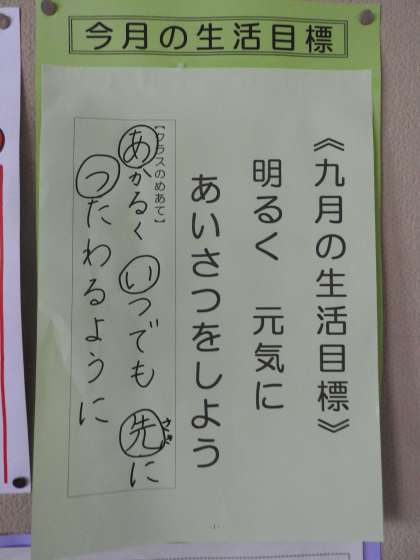 今月の生活目標
《九月の生活目標》
明るく 元気に
あいさつをしよう
【クラスのめあて】
あかるく いつでも 先に
さき
つたわるように
- 1 -